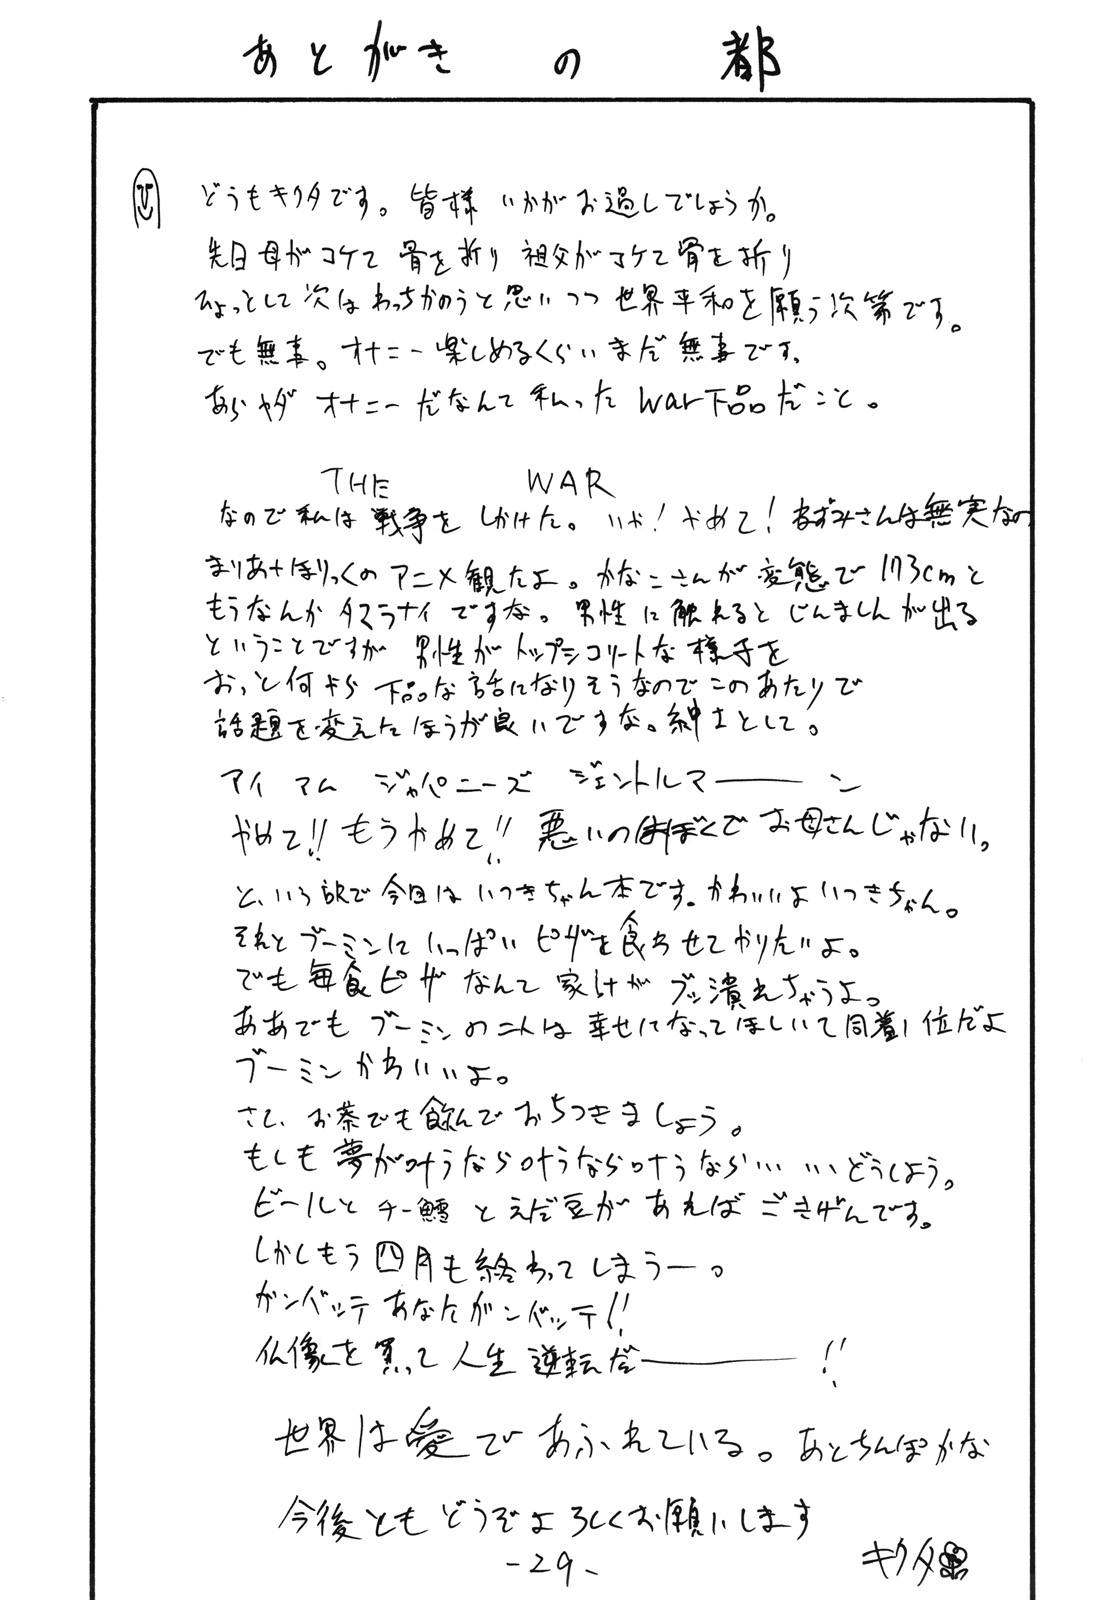 あとがきの都
どうもキクタです。皆様いかがお過しでしょうか。
先日母がコケて骨を折り祖父がコケて骨を折り
ひょっとして次はわっちかのうと思いつつ世界平和を願う次第です。
でも無事。オナニー楽しめるくらいまだ無事です。
あらヤダオナニーだなんて私ったwar下品だこと。
THE WAR
なので私は戦争をしかけた。いや!やめて!ねずみさんは無実なの
まりあ†ほりっくのアニメ観たよ。かなこさんが変態で173cmと
もうなんかタマラナイですな。男性に触れるとじんましんが出る
ということですが男性がトップシコリートな様子を
おっと何やら下品な話になりそうなのでこのあたりで
話題を変えたほうが良いですな。紳士として。
アイ アム ジャパニーズ ジェントルマーーン
やめて!!もうやめて!!悪いのはぼくでお母さんじゃない。
という訳で今回はいつきちゃん本です。かわいいよいつきちゃん。
それとブーミンにいっぱいピザを食わせてやりたいよ。
でも毎食ピザなんて家計がブッ潰れちゃうよ。
ああでもブーミンの二人は幸せになってほしいて同着1位だよ
ブーミンかわいいよ。
さて、お茶でも飲んでおちつきましょう。
もしも夢が叶うなら叶うなら叶うなら……どうしよう。
ビールとチー鱈とえだ豆があればごきげんです。
しかしもう四月も終わってしまうー。
ガンバッテあなたガンバッテ!!
仏像を買って人生逆転だーー!!
世界は愛であふれている。あとちんぽかな
今後ともどうぞよろしくお願いします
-29-
キクタ